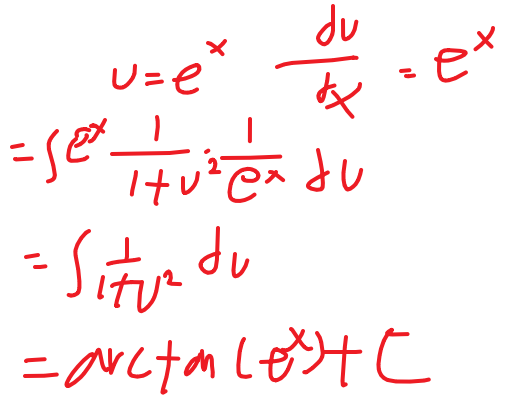 u = e^x   du/dx = e^x
= ∫ e^x 1/(1+u²) · 1/e^x du
= ∫ 1/(1+u²) du
= arctan(e^x) + C